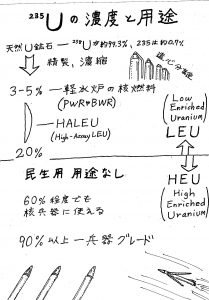 ²³⁵Uの濃度と用途
天然U鉱石 — ²³⁸Uが約99.3%、235は約0.7%
精製、濃縮
遠心分離
3-5% — 軽水炉の核燃料
(PWR・BWR)
HALEU
(High-Assay LEU)
20%
(Low
Enriched
Uranium)
LEU
民生用 用途なし
HEU
(High
Enriched
Uranium)
60%程度でも
核兵器に使える
90%以上 — 兵器グレード